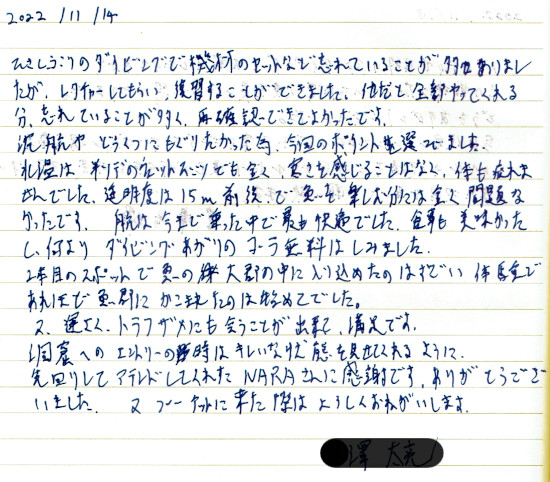 2022/11/14
ひさしぶりのダイビングで機材のセットなど忘れていることが多々ありまし
たが、レクチャーしてもらい、復習することができました。他だと全部やってくれる
分、忘れていることが多く、再確認できてよかったです。
沈船や どうくつにもぐりたかった為、今回のポイントを選びました。
水温は半ソデのウェットスーツでも全く寒さを感じることはなく、体も疲れま
せんでした。透明度は15m前後で魚を楽しむ分には全く問題な
かったです。 船は今まで乗った中で最も快適でした。食事も美味かった
し、何より ダイビングあがりのコーラ無料はしみました。
2本目のスポットで魚の大群の中に入り込めたのはすごい体験で
あれほどで魚群にかこまれたのは始めてでした。
又、運よく、トラフザメにも会うことが出来て、満足です。
洞窟へのエントリーの時はキレイな状態を見せてくれるように、
先回りしてアテンドしてくれたNARAさんに感謝です。ありがとうござ
いました。 又プーケットに来た際はよろしくおねがいします。
澤 太亮